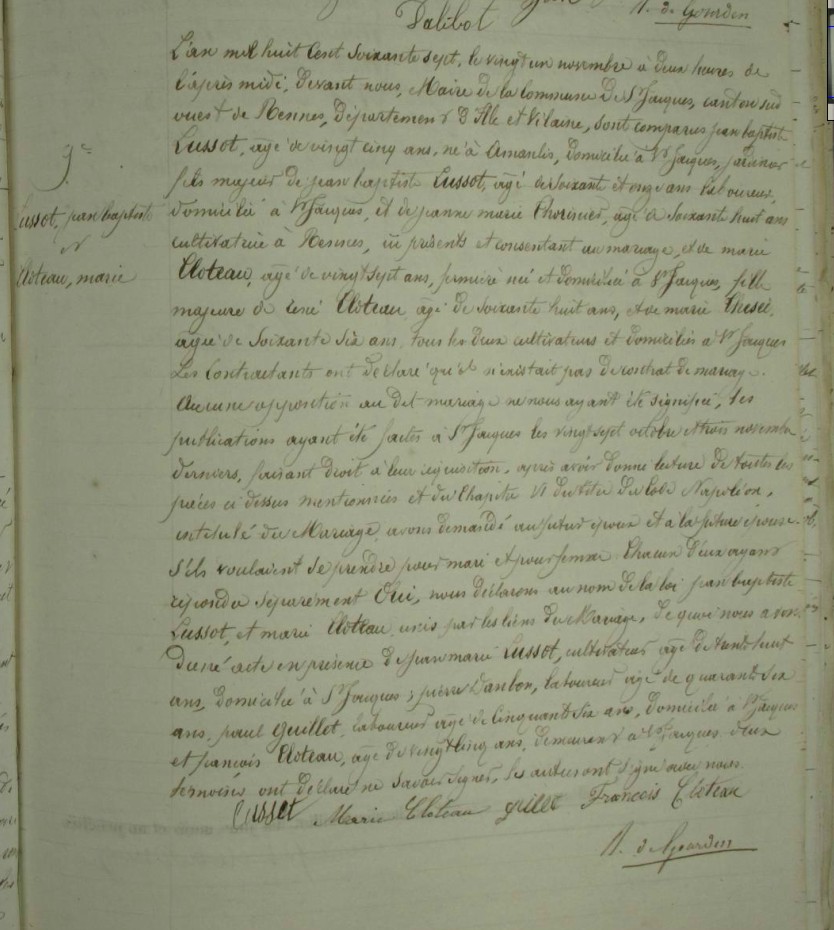 Dalibot
A. de Gourden
L'an mil huit cent soixante sept, le vingt un novembre à deux heures de
l'après midi, devant nous, Maire de la commune de St Jacques, canton sud
ouest de Rennes, département d'Ile et Vilaine, sont comparus jean baptiste
Lussot, agé de vingt cinq ans, né à Amanlis, domicilié à St Jacques, jardinier
fils majeur de jean baptiste Lussot, agé de soixante et onze ans laboureur,
domicilié à St Jacques, et de jeanne marie agée de soixante huit ans
cultivatrice à Rennes, ici présents et consentant au mariage, et de marie
Cloteau, agé de vingt sept ans, née et domiciliée à St Jacques, fille
majeure de rené Cloteau, agé de soixante huit ans, et de marie
agée de soixante six ans, tous les deux cultivateurs et domiciliés à St Jacques
Les Contractants ont déclaré qu'il n'existait pas de contrat de mariage.
Aucune opposition au dit mariage ne nous ayant été signifiée, les
publications ayant été faites à St Jacques les vingt sept octobre et trois novembre
derniers, faisant droit à leur réquisition, après avoir donné lecture de toutes les
pièces ci dessus mentionnées et du Chapitre VI du titre du Code Napoléon,
intitulé du Mariage, avons demandé au futur époux et à la future épouse
s'ils voulaient se prendre pour mari et pour femme. Chacun d'eux ayant
répondu séparément Oui, nous déclarons au nom de la loi jean baptiste
Lussot, et marie Cloteau, unis par les liens du Mariage. De quoi nous avons
dressé acte en présence de jean marie Lussot, cultivateur agé de trente huit
ans, domicilié à St Jacques; pierre Danlon, laboureur agé de quarante six
ans, paul Guillet, laboureur agé de cinquante six ans, domicilié à St Jacques
et francois Cloteau, agé de vingt cinq ans, demeurant à St Jacques. deux
ont déclaré ne savoir signer, les autres ont signé avec nous.
Lussot Marie Cloteau Guillet Francois Cloteau
A. de Gourden
9e
Lussot, jean baptiste
et
Cloteau, marie